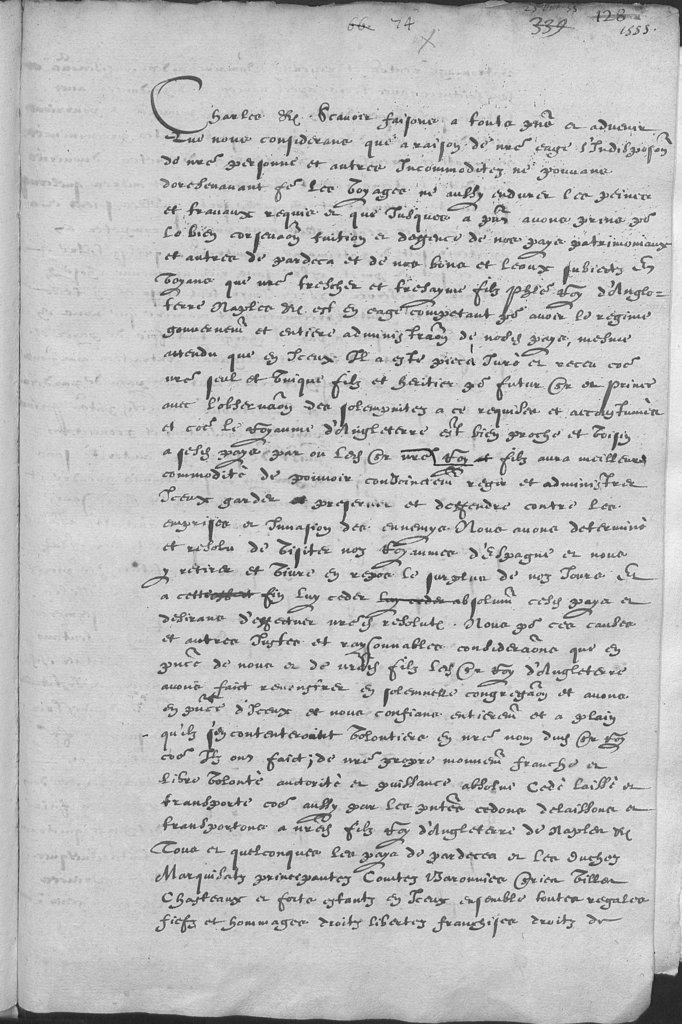 66 74
339 128
1555.
Charles &c. Scavoir faisons a touts pñs et advenir
Que nous considerans que a raison de nre eage l'Indisposõn
de nre personne et autres Incommoditez ne pouvans
doresenavant fe Les voyages ne aussy endurer les peines
et travaux requis et que Jusques a pñt avons prins pr
la bien conservaõn tuition et deffence de nos pays patrimoniaux
et autres de pardeca et de nos bons et leaux subiectz Et
voyans que nre trescher et tresayme filz Phle Roy d'Angle-
terre Naples &c. est en eage competant pr avoir le regime
gouvernemt et entiere administraõn de nosdis pays, mesme
attendu que en Iceux Il a esté pieça Juré et receu coe
nre seul et unique filz et heritier pr futur Sr et Prince
avec l'observaõn des solempnitez a ce requises et accoustumées
et coe le Royaume d'Angleterre est bien proche et voisin
a sesdis pays par ou ledis Sr nre Roy et filz aura meilleure
commodité de pouvoir regir et administrer
Iceux garder et preserver et deffendre contre les
emprises et Invasion des ennemys Nous avons determiné
et resolu de visiter noz Royaumes d'Espagne et nous
y retirer et vivre en repos le surplus de noz Jours Et
a cette fin luy ceder luy ceder absolumt cesdis pays et
desirans d'effectuer nredis resolutn. Nous pr ces causes
et autres Justes et raysonnables consideraõns que en
pnce de nous et de nredis filz ledis Sr Roy d'Angleterre
avons faict en solennelle congregaõn et avons
en pnce d'Iceux et nous confians entieremt et a plain
qu'ilz s'en contenteront voluntiers en nre nom dudis Sr Roy
coe Ilz ont faict; de nre propre mouvemt franche et
libre volonté auctorité et puissance absolue Cedé laissé et
transporté coe aussy par les pntes cedons delaissons et
transportons a nredis filz Roy d'Angleterre de Naples &c
Tous et quelconques les pays de pardecea et les duchez
Marquisatz principautez Comtez Baronnies Sries villes
Chasteaux et forts estants en Iceux ensemble toutes regales
fiefz et hommages droitz libertez franchises droitz de